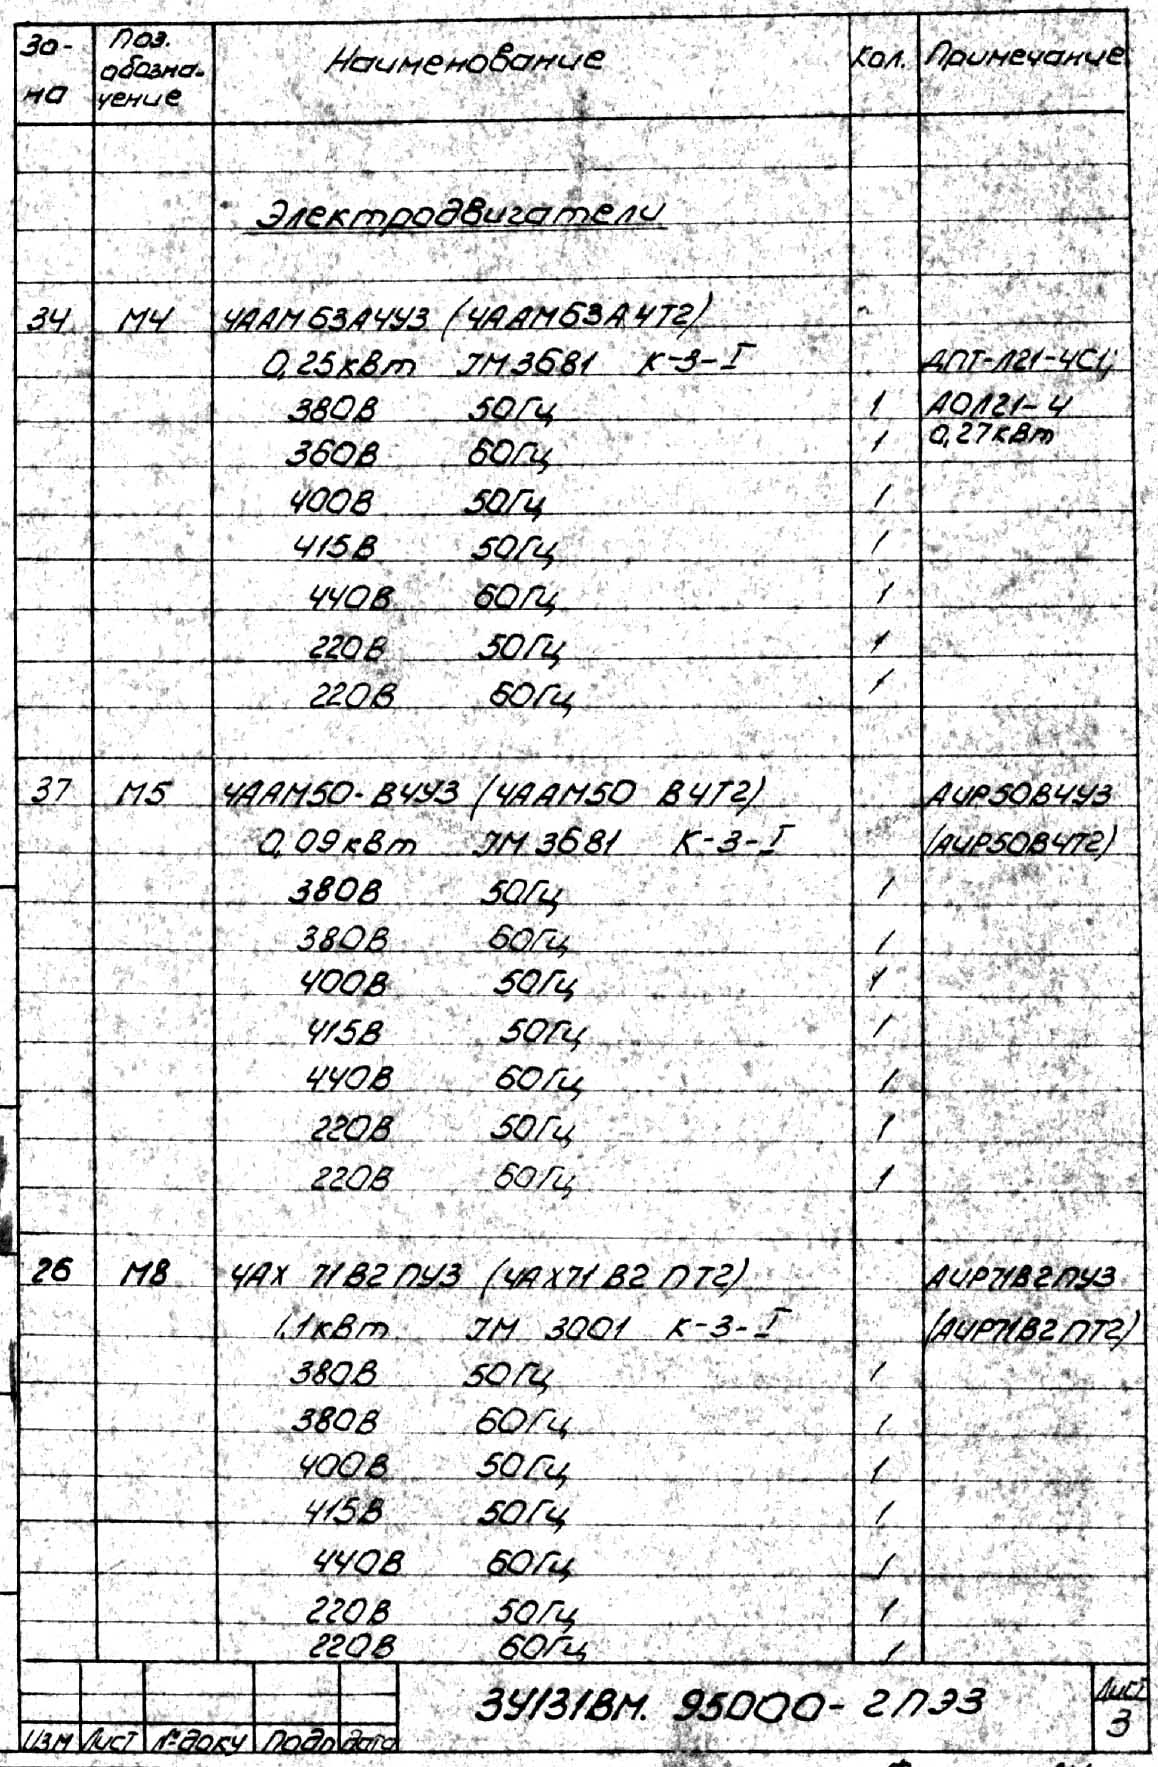 Зо-на Поз. обозна-чение Наименование Кол. Примечание
Электродвигатели
34 М4 4ААМ63А4У3 (4ААМ63А4Т2)
0,25кВт IМ3681 К-3-I ДПТ-Л21-4С1;
380В 50Гц 1 АОЛ21-4
360В 60Гц 1 0,27кВт
400В 50Гц 1
415В 50Гц 1
440В 60Гц 1
220В 50Гц 1
220В 60Гц 1
37 М5 4ААМ50-В4У3 (4ААМ50 В4Т2) АИР50В4У3
0,09кВт IМ 3681 К-3-I (АИР50В4Т2)
380В 50Гц 1
380В 60Гц 1
400В 50Гц 1
415В 50Гц 1
440В 60Гц 1
220В 50Гц 1
220В 60Гц 1
26 М8 4АХ 71В2 ПУ3 (4АХ71 В2 ПТ2) АИР71В2ПУ3
1,1кВт IМ 3001 К-3-I (АИР71В2ПТ2)
380В 50Гц 1
380В 60Гц 1
400В 50Гц 1
415В 50Гц 1
440В 60Гц 1
220В 50Гц 1
220В 60Гц 1
3У131ВМ. 95000-2ПЭ3 Лист
3
Изм Лист № доку Подп дата